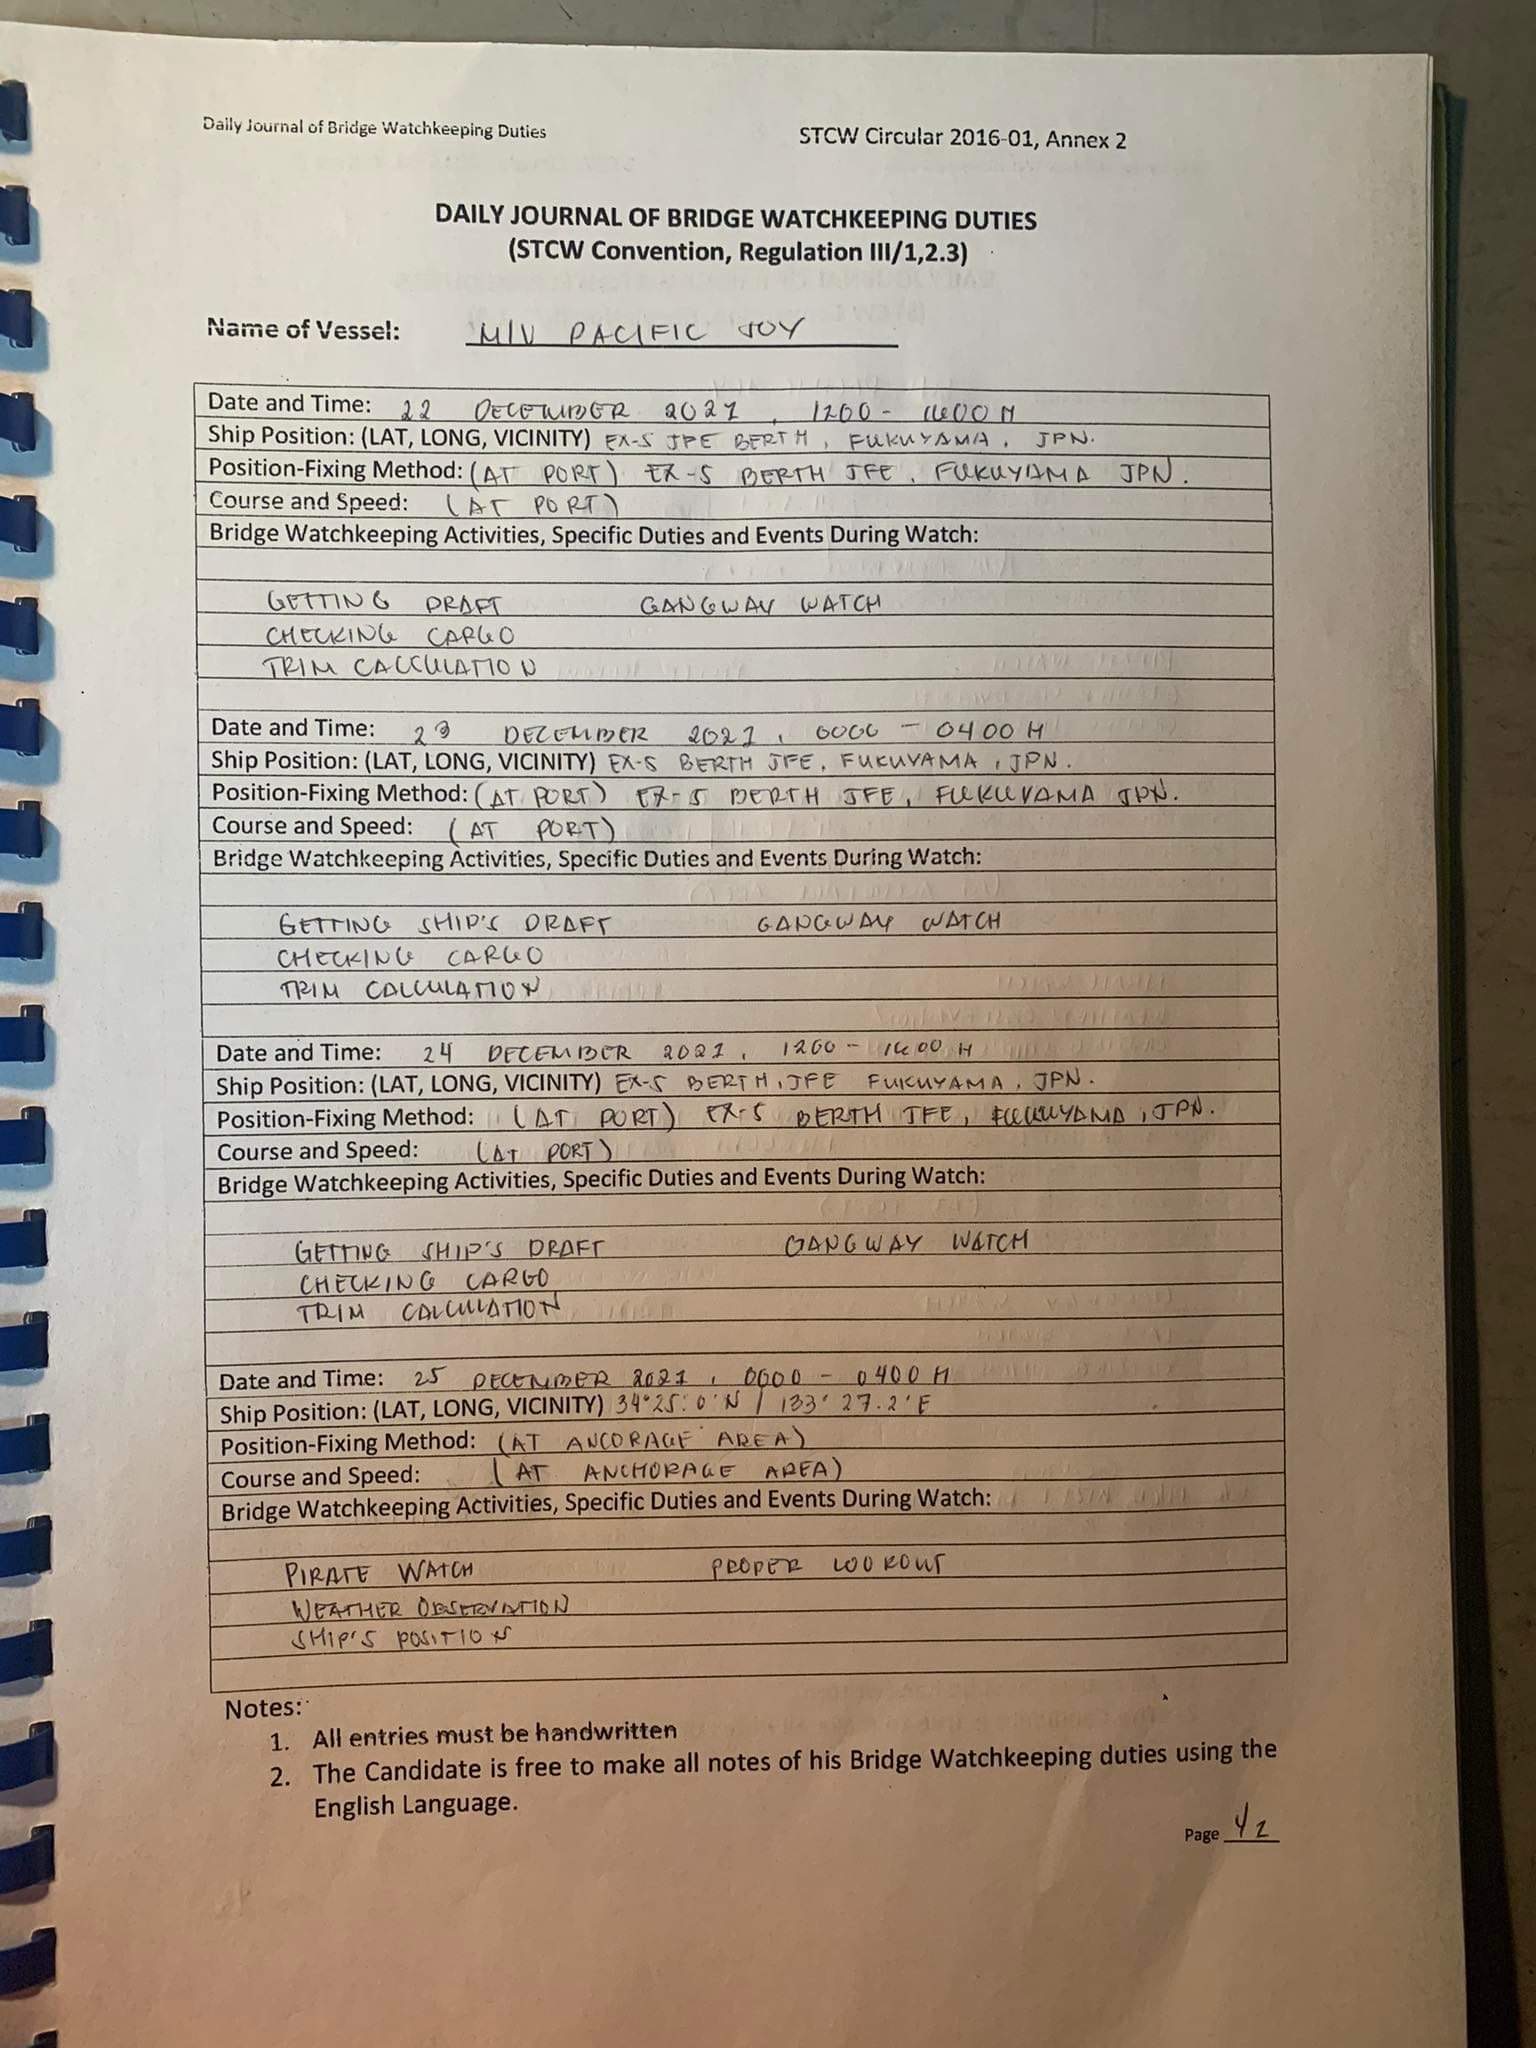 Daily Journal of Bridge Watchkeeping Duties
STCW Circular 2016-01, Annex 2
DAILY JOURNAL OF BRIDGE WATCHKEEPING DUTIES
(STCW Convention, Regulation III/1,2.3)
Name of Vessel: M/V PACIFIC JOY
Date and Time: 22 DECEMBER 2021, 1200 - 1600 H
Ship Position: (LAT, LONG, VICINITY) EX-5 JFE BERTH, FUKUYAMA, JPN.
Position-Fixing Method: (AT PORT) EX-5 BERTH JFE, FUKUYAMA JPN.
Course and Speed: (AT PORT)
Bridge Watchkeeping Activities, Specific Duties and Events During Watch:
GETTING DRAFT GANGWAY WATCH
CHECKING CARGO
TRIM CALCULATION
Date and Time: 23 DECEMBER 2021, 0000 - 0400 H
Ship Position: (LAT, LONG, VICINITY) EX-5 BERTH JFE, FUKUYAMA, JPN.
Position-Fixing Method: (AT PORT) EX-5 BERTH JFE, FUKUYAMA JPN.
Course and Speed: (AT PORT)
Bridge Watchkeeping Activities, Specific Duties and Events During Watch:
GETTING SHIP'S DRAFT GANGWAY WATCH
CHECKING CARGO
TRIM CALCULATION
Date and Time: 24 DECEMBER 2021, 1200 - 1600 H
Ship Position: (LAT, LONG, VICINITY) EX-5 BERTH, JFE FUKUYAMA, JPN.
Position-Fixing Method: (AT PORT) EX-5 BERTH JFE, FUKUYAMA, JPN.
Course and Speed: (AT PORT)
Bridge Watchkeeping Activities, Specific Duties and Events During Watch:
GETTING SHIP'S DRAFT GANGWAY WATCH
CHECKING CARGO
TRIM CALCULATION
Date and Time: 25 DECEMBER 2021, 0000 - 0400 H
Ship Position: (LAT, LONG, VICINITY) 34°25.0'N / 133°27.2'E
Position-Fixing Method: (AT ANCORAGE AREA)
Course and Speed: (AT ANCHORAGE AREA)
Bridge Watchkeeping Activities, Specific Duties and Events During Watch:
PIRATE WATCH PROPER LOOKOUT
WEATHER OBSERVATION
SHIP'S POSITION
Notes:
1. All entries must be handwritten
2. The Candidate is free to make all notes of his Bridge Watchkeeping duties using the
English Language.
Page